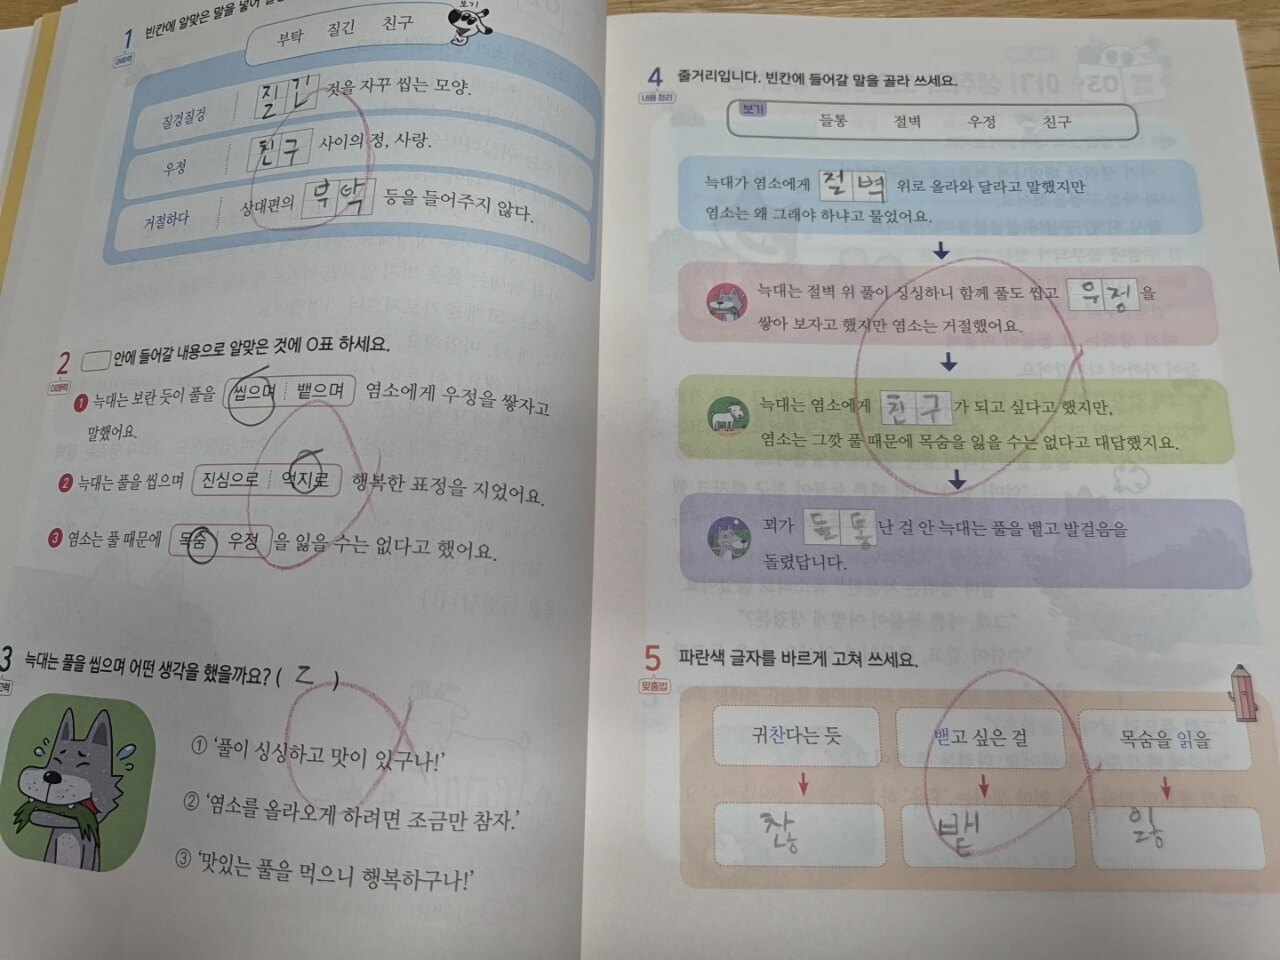 1 빈칸에 알맞은 말을 넣어
어휘력
보기
부탁 질긴 친구
질겅질겅 질긴 것을 자꾸 씹는 모양.
우정 친구 사이의 정, 사랑.
거절하다 상대편의 부탁 등을 들어주지 않다.
2 안에 들어갈 내용으로 알맞은 것에 O표 하세요.
이해력
1 늑대는 보란 듯이 풀을 씹으며 뱉으며 염소에게 우정을 쌓자고
말했어요.
2 늑대는 풀을 씹으며 진심으로 억지로 행복한 표정을 지었어요.
3 염소는 풀 때문에 목숨 우정 을 잃을 수는 없다고 했어요.
3 늑대는 풀을 씹으며 어떤 생각을 했을까요? ( 2 )
① ‘풀이 싱싱하고 맛이 있구나!’
② ‘염소를 올라오게 하려면 조금만 참자.’
③ ‘맛있는 풀을 먹으니 행복하구나!’
4 줄거리입니다. 빈칸에 들어갈 말을 골라 쓰세요.
내용 정리
보기
들통 절벽 우정 친구
늑대가 염소에게 절벽 위로 올라와 달라고 말했지만
염소는 왜 그래야 하냐고 물었어요.
늑대는 절벽 위 풀이 싱싱하니 함께 풀도 씹고 우정 을
쌓아 보자고 했지만 염소는 거절했어요.
늑대는 염소에게 친구 가 되고 싶다고 했지만,
염소는 그깟 풀 때문에 목숨을 잃을 수는 없다고 대답했지요.
꾀가 들통 난 걸 안 늑대는 풀을 뱉고 발걸음을
돌렸답니다.
5 파란색 글자를 바르게 고쳐 쓰세요.
맞춤법
귀찬다는 듯 뱉고 싶은 걸 목숨을 읽을
찮 뱉 잃